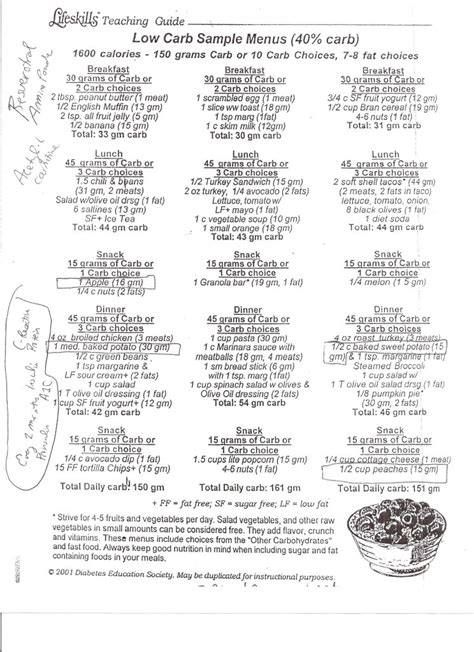 Lifeskills Teaching Guide
Low Carb Sample Menus (40% carb)
1600 calories - 150 grams Carb or 10 Carb Choices, 7-8 fat choices
Breakfast
30 grams of Carb or
2 Carb Choices
2 tbsp. peanut butter (1 meat)
1/2 English Muffin (13 gm)
2 tsp. all fruit jelly (5 gm)
1/2 banana (15 gm)
Total: 33 gm carb
Breakfast
30 grams of Carb or
2 Carb Choices
1 scrambled egg (1 meat)
1 slice ww toast (18 gm)
1 tsp marg (1fat)
1 c skim milk (12gm)
Total: 30 gm carb
Breakfast
30 grams of Carb or
2 Carb Choices
3/4 c SF fruit yogurt (12 gm)
1/2 cup Bran cereal (19 gm)
4-6 nuts (1 fat)
Total: 31 gm carb
Lunch
45 grams of Carb or
3 Carb Choices
1.5 chili & beans
(31 gm, 2 meats)
Salad w/olive oil drsg (1 fat)
6 saltines (13 gm)
SF+ Ice Tea
Total: 44 gm carb
Lunch
45 grams of Carb or
3 Carb Choices
1/2 Turkey Sandwich (15 gm)
2 oz turkey, 1/4 avocado (2 fats)
Lettuce, tomato/w
LF+ mayo (1 fat)
1 c vegetable soup (10 gm)
1 small orange (18 gm)
Total: 43 gm carb
Lunch
45 grams of Carb or
3 Carb Choices
2 soft shell tacos* (44 gm)
(2 meats, 2 fats in taco)
lettuce, tomato, onion,
8 black olives (1 fat)
1 diet soda
Total: 44 gm carb
Snack
15 grams of Carb or
1 Carb choice
1 Apple (16 gm)
1/4 c nuts (2 fats)
Snack
15 grams of Carb or
1 Carb choice
1 Granola bar* (19 gm, 1 fat)
Snack
15 grams of Carb or
1 Carb choice
1/4 melon (15 gm)
Dinner
45 grams of Carb or
3 Carb choices
4 oz broiled chicken (3 meats)
1 med. baked potato (30 gm)
1/2 c green beans
1 tsp margarine &
LF sour cream+ (2 fats)
1 cup salad
1 T olive oil dressing (1 fat)
1 cup SF fruit yogurt+ (12 gm)
Total: 42 gm carb
Dinner
45 grams of Carb or
3 Carb choices
1 cup pasta (30 gm)
1 c Marinara sauce with
meatballs (18 gm, 4 meats)
1 sm bread stick (6 gm)
with 1 tsp. marg (1fat)
1 cup spinach salad w olives &
Olive Oil dressing (2 fats)
Total: 54 gm carb
Dinner
45 grams of Carb or
3 Carb choices
4 oz roast turkey (3 meats)
1/2 c baked sweet potato (15
gm) & 1 tsp. margarine (1 fat)
Steamed Broccoli
1 cup salad w/
1 T olive oil salad drsg (1 fat)
1/8 pumpkin pie*
(30 gm, 2 fats)
Total: 46 gm carb
Snack
15 grams of Carb or
1 Carb Choice
1/4 c avocado dip (1 fat)
15 FF tortilla Chips+ (15 gm)
Snack
15 grams of Carb or
1 Carb Choice
1.5 cups lite popcorn (15 gm)
4-6 nuts (1 fat)
Snack
15 grams of Carb or
1 Carb Choice
1/4 cup cottage cheese (1 meat)
1/2 cup peaches (15 gm)
Total Daily carb: 150 gm
Total Daily carb: 161 gm
Total Daily carb: 151 gm
+ FF = fat free; SF = sugar free; LF = low fat
* Strive for 4-5 fruits and vegetables per day. Salad vegetables, and other raw
vegetables in small amounts can be considered free. They add flavor, crunch
and vitamins. These menus include choices from the "Other Carbohydrates"
and fast food. Always keep good nutrition in mind when including sugar and fat
containing foods in your meals.
© 2001 Diabetes Education Society. May be duplicated for instructional purposes.